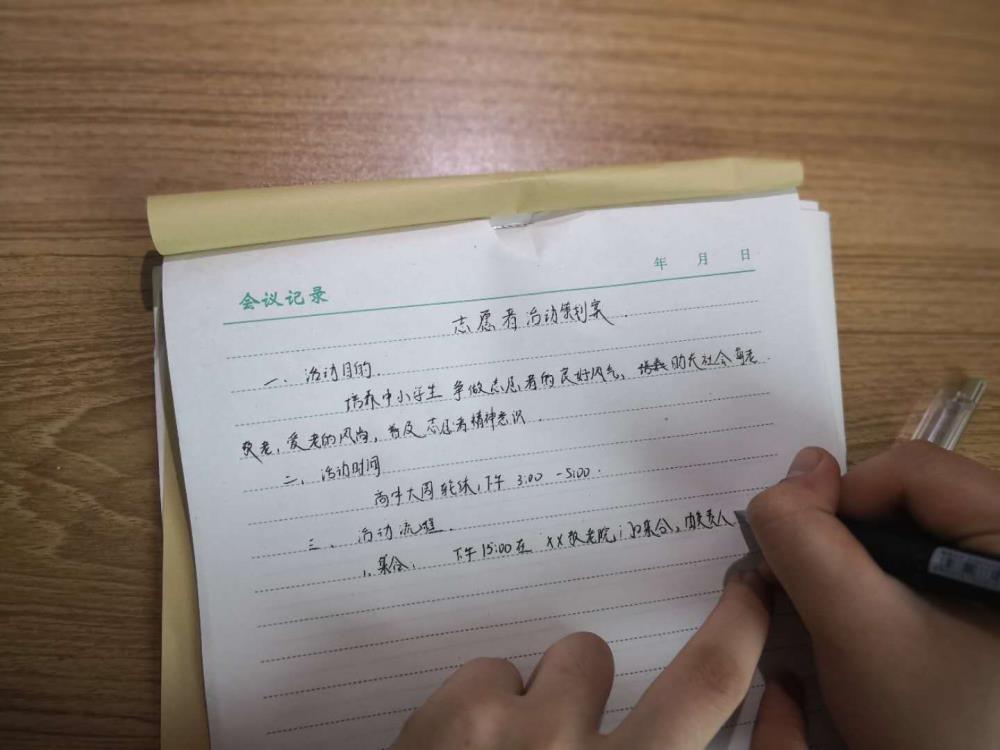 会议记录
年 月 日
志愿者活动策划案.
一、活动目的.
培养中小学生争做志愿者的良好风气, 助长社会
敬老,爱老的风尚,普及志愿者精神意识.
二、活动时间
高中大周轮休,下午 3:00-5:00.
三、活动流程.
1、集合, 下午15:00在 XX敬老院门口集合,由负责人